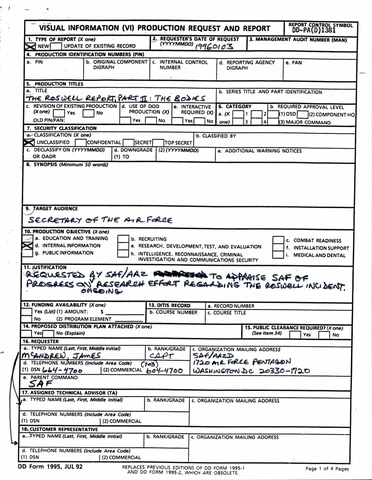 VISUAL INFORMATION (VI) PRODUCTION REQUEST AND REPORT
REPORT CONTROL SYMBOL
DD-PA(D)1381
1. TYPE OF REPORT (X one)
NEW UPDATE OF EXISTING RECORD
2. REQUESTER'S DATE OF REQUEST (YYYYMMDD)
19960103
3. MANAGEMENT AUDIT NUMBER (MAN)
4. PRODUCTION IDENTIFICATION NUMBERS (PIN)
a. PIN
b. ORIGINAL COMPONENT DIGRAPH
c. INTERNAL CONTROL NUMBER
d. REPORTING AGENCY DIGRAPH
e. PAN
5. PRODUCTION TITLES
a. TITLE
THE ROSWELL REPORT, PART II: THE BODIES
b. SERIES TITLE AND PART IDENTIFICATION
c. REVISION OF EXISTING PRODUCTION (X one) Yes No
OLD PIN/PAN:
d. USE OF DOD PRODUCTION (X)
Yes No
e. INTERACTIVE REQUIRED (X)
Yes No
6. CATEGORY
a. (X one) 1 2 3 4
b. REQUIRED APPROVAL LEVEL
(1) OSD (2) COMPONENT HQ
(3) MAJOR COMMAND
7. SECURITY CLASSIFICATION
a. CLASSIFICATION (X one)
UNCLASSIFIED CONFIDENTIAL SECRET TOP SECRET
b. CLASSIFIED BY
c. DECLASSIFY ON (YYYYMMDD) OR OADR
d. DOWNGRADE (1) TO
(2) (YYYYMMDD)
e. ADDITIONAL WARNING NOTICES
8. SYNOPSIS (Minimum 50 words)
9. TARGET AUDIENCE
SECRETARY OF THE AIR FORCE
10. PRODUCTION OBJECTIVE (X one)
a. EDUCATION AND TRAINING
b. RECRUITING
c. COMBAT READINESS
d. INTERNAL INFORMATION
e. RESEARCH, DEVELOPMENT, TEST, AND EVALUATION
f. INSTALLATION SUPPORT
g. PUBLIC INFORMATION
h. INTELLIGENCE, RECONNAISSANCE, CRIMINAL INVESTIGATION AND COMMUNICATIONS SECURITY
i. MEDICAL AND DENTAL
11. JUSTIFICATION
REQUESTED BY SAF/AAZ TO APPRAISE SAF OF
PROGRESS ON RESEARCH EFFORT REGARDING THE ROSWELL INCIDENT.
ONGOING
12. FUNDING AVAILABILITY (X one)
Yes (List) (1) AMOUNT: $
No (2) PROGRAM ELEMENT
13. DITIS RECORD
a. RECORD NUMBER
b. COURSE NUMBER
c. COURSE TITLE
14. PROPOSED DISTRIBUTION PLAN ATTACHED (X one)
Yes No (Explain)
15. PUBLIC CLEARANCE REQUIRED? (X one)
(See Item 34) Yes No
16. REQUESTER
a. TYPED NAME (Last, First, Middle Initial)
MCANDREW, JAMES
b. RANK/GRADE
CAPT
c. ORGANIZATION MAILING ADDRESS
SAF/AAZD
1720 AIR FORCE PENTAGON
WASHINGTON DC 20330-1720
d. TELEPHONE NUMBERS (Include Area Code) (703)
(1) DSN 664-4700 (2) COMMERCIAL 604-4700
e. PARENT COMMAND
SAF
17. ASSIGNED TECHNICAL ADVISOR (TA)
a. TYPED NAME (Last, First, Middle Initial)
b. RANK/GRADE
c. ORGANIZATION MAILING ADDRESS
d. TELEPHONE NUMBERS (Include Area Code)
(1) DSN (2) COMMERCIAL
18. CUSTOMER REPRESENTATIVE
a. TYPED NAME (Last, First, Middle Initial)
b. RANK/GRADE
c. ORGANIZATION MAILING ADDRESS
d. TELEPHONE NUMBERS (Include Area Code)
(1) DSN (2) COMMERCIAL
DD Form 1995, JUL 92
REPLACES PREVIOUS EDITIONS OF DD FORM 1995-1
AND DD FORM 1995-2, WHICH ARE OBSOLETE.
Page 1 of 4 Pages